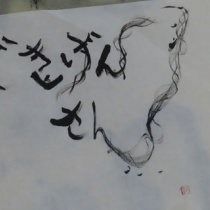 ごきげん
さん